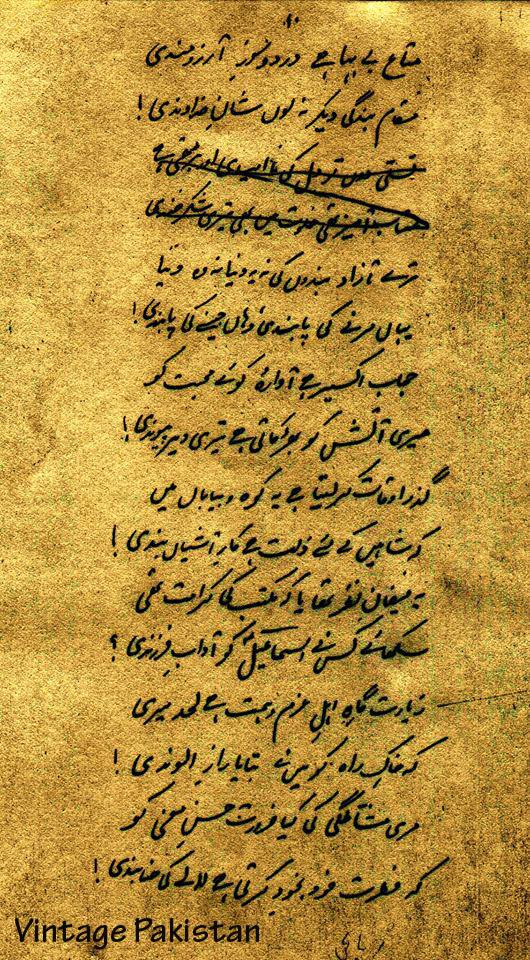 ۱۰
متاع بے بہا ہے درد و سوزِ آرزو مندی
مقام بندگی دیکر نہ لوں شانِ خداوندی!
دل کی نا امیدی اور
میں بھی تیری شکر خندی
ترے آزاد بندوں کی نہ یہ دنیا نہ وہ دنیا
یہاں مرنے کی پابندی وہاں جینے کی پابندی!
حجاب اکسیر ہے آوارۂ کوئے محبت کو
میری آتش کو بھڑکاتی ہے تیری دیر پیوندی!
گذر اوقات کر لیتا ہے یہ کوہ و بیاباں میں
کہ شاہیں کے لئے ذلت ہے کارِ آشیاں بندی!
یہ فیضانِ نظر تھا یا کہ مکتب کی کرامت تھی
سکھائے کس نے اسماعیلؑ کو آدابِ فرزندی؟
زیارت گاہِ اہلِ عزم و ہمت ہے لحد میری
کہ خاکِ راہ کو میں نے بتایا رازِ الوندی!
مری مشاطگی کی کیا ضرورت حسنِ معنی کو
کہ فطرت خود بخود کرتی ہے لالے کی حنا بندی!
رباعی
Vintage Pakistan